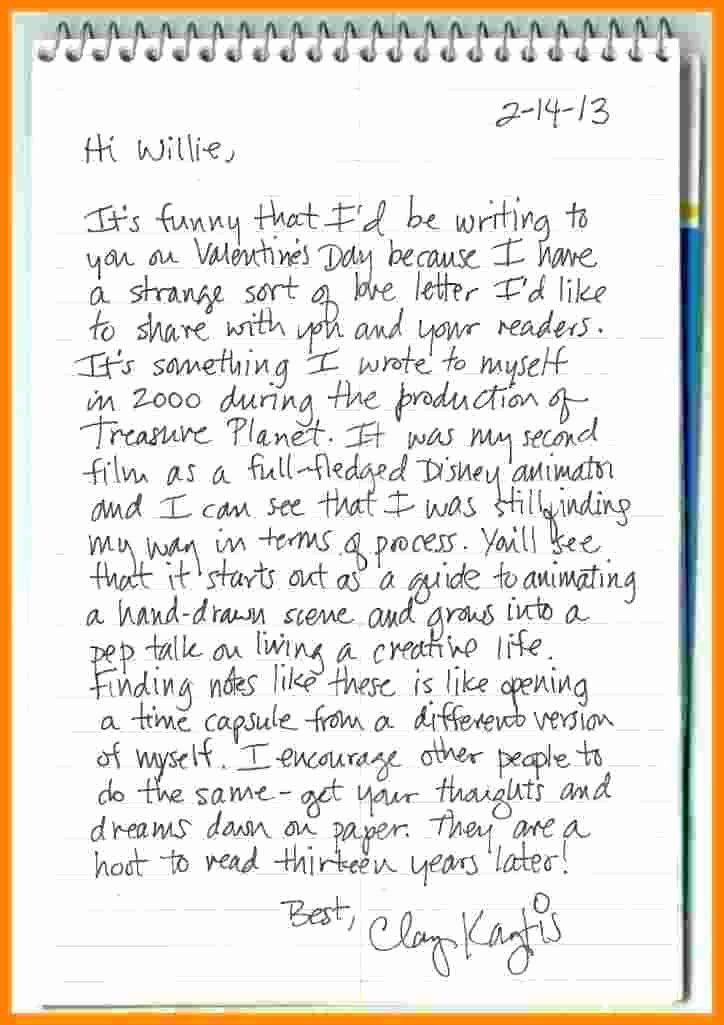 2-14-13
Hi Willie,
It's funny that I'd be writing to
you on Valentine's Day because I have
a strange sort of love letter I'd like
to share with you and your readers.
It's something I wrote to myself
in 2000 during the production of
Treasure Planet. It was my second
film as a full-fledged Disney animator
and I can see that I was still finding
my way in terms of process. You'll see
that it starts out as a guide to animating
a hand-drawn scene and grows into a
pep talk on living a creative life.
Finding notes like these is like opening
a time capsule from a different version
of myself. I encourage other people to
do the same - get your thoughts and
dreams down on paper. They are a
hoot to read thirteen years later!
Best,
Clay Kaytis